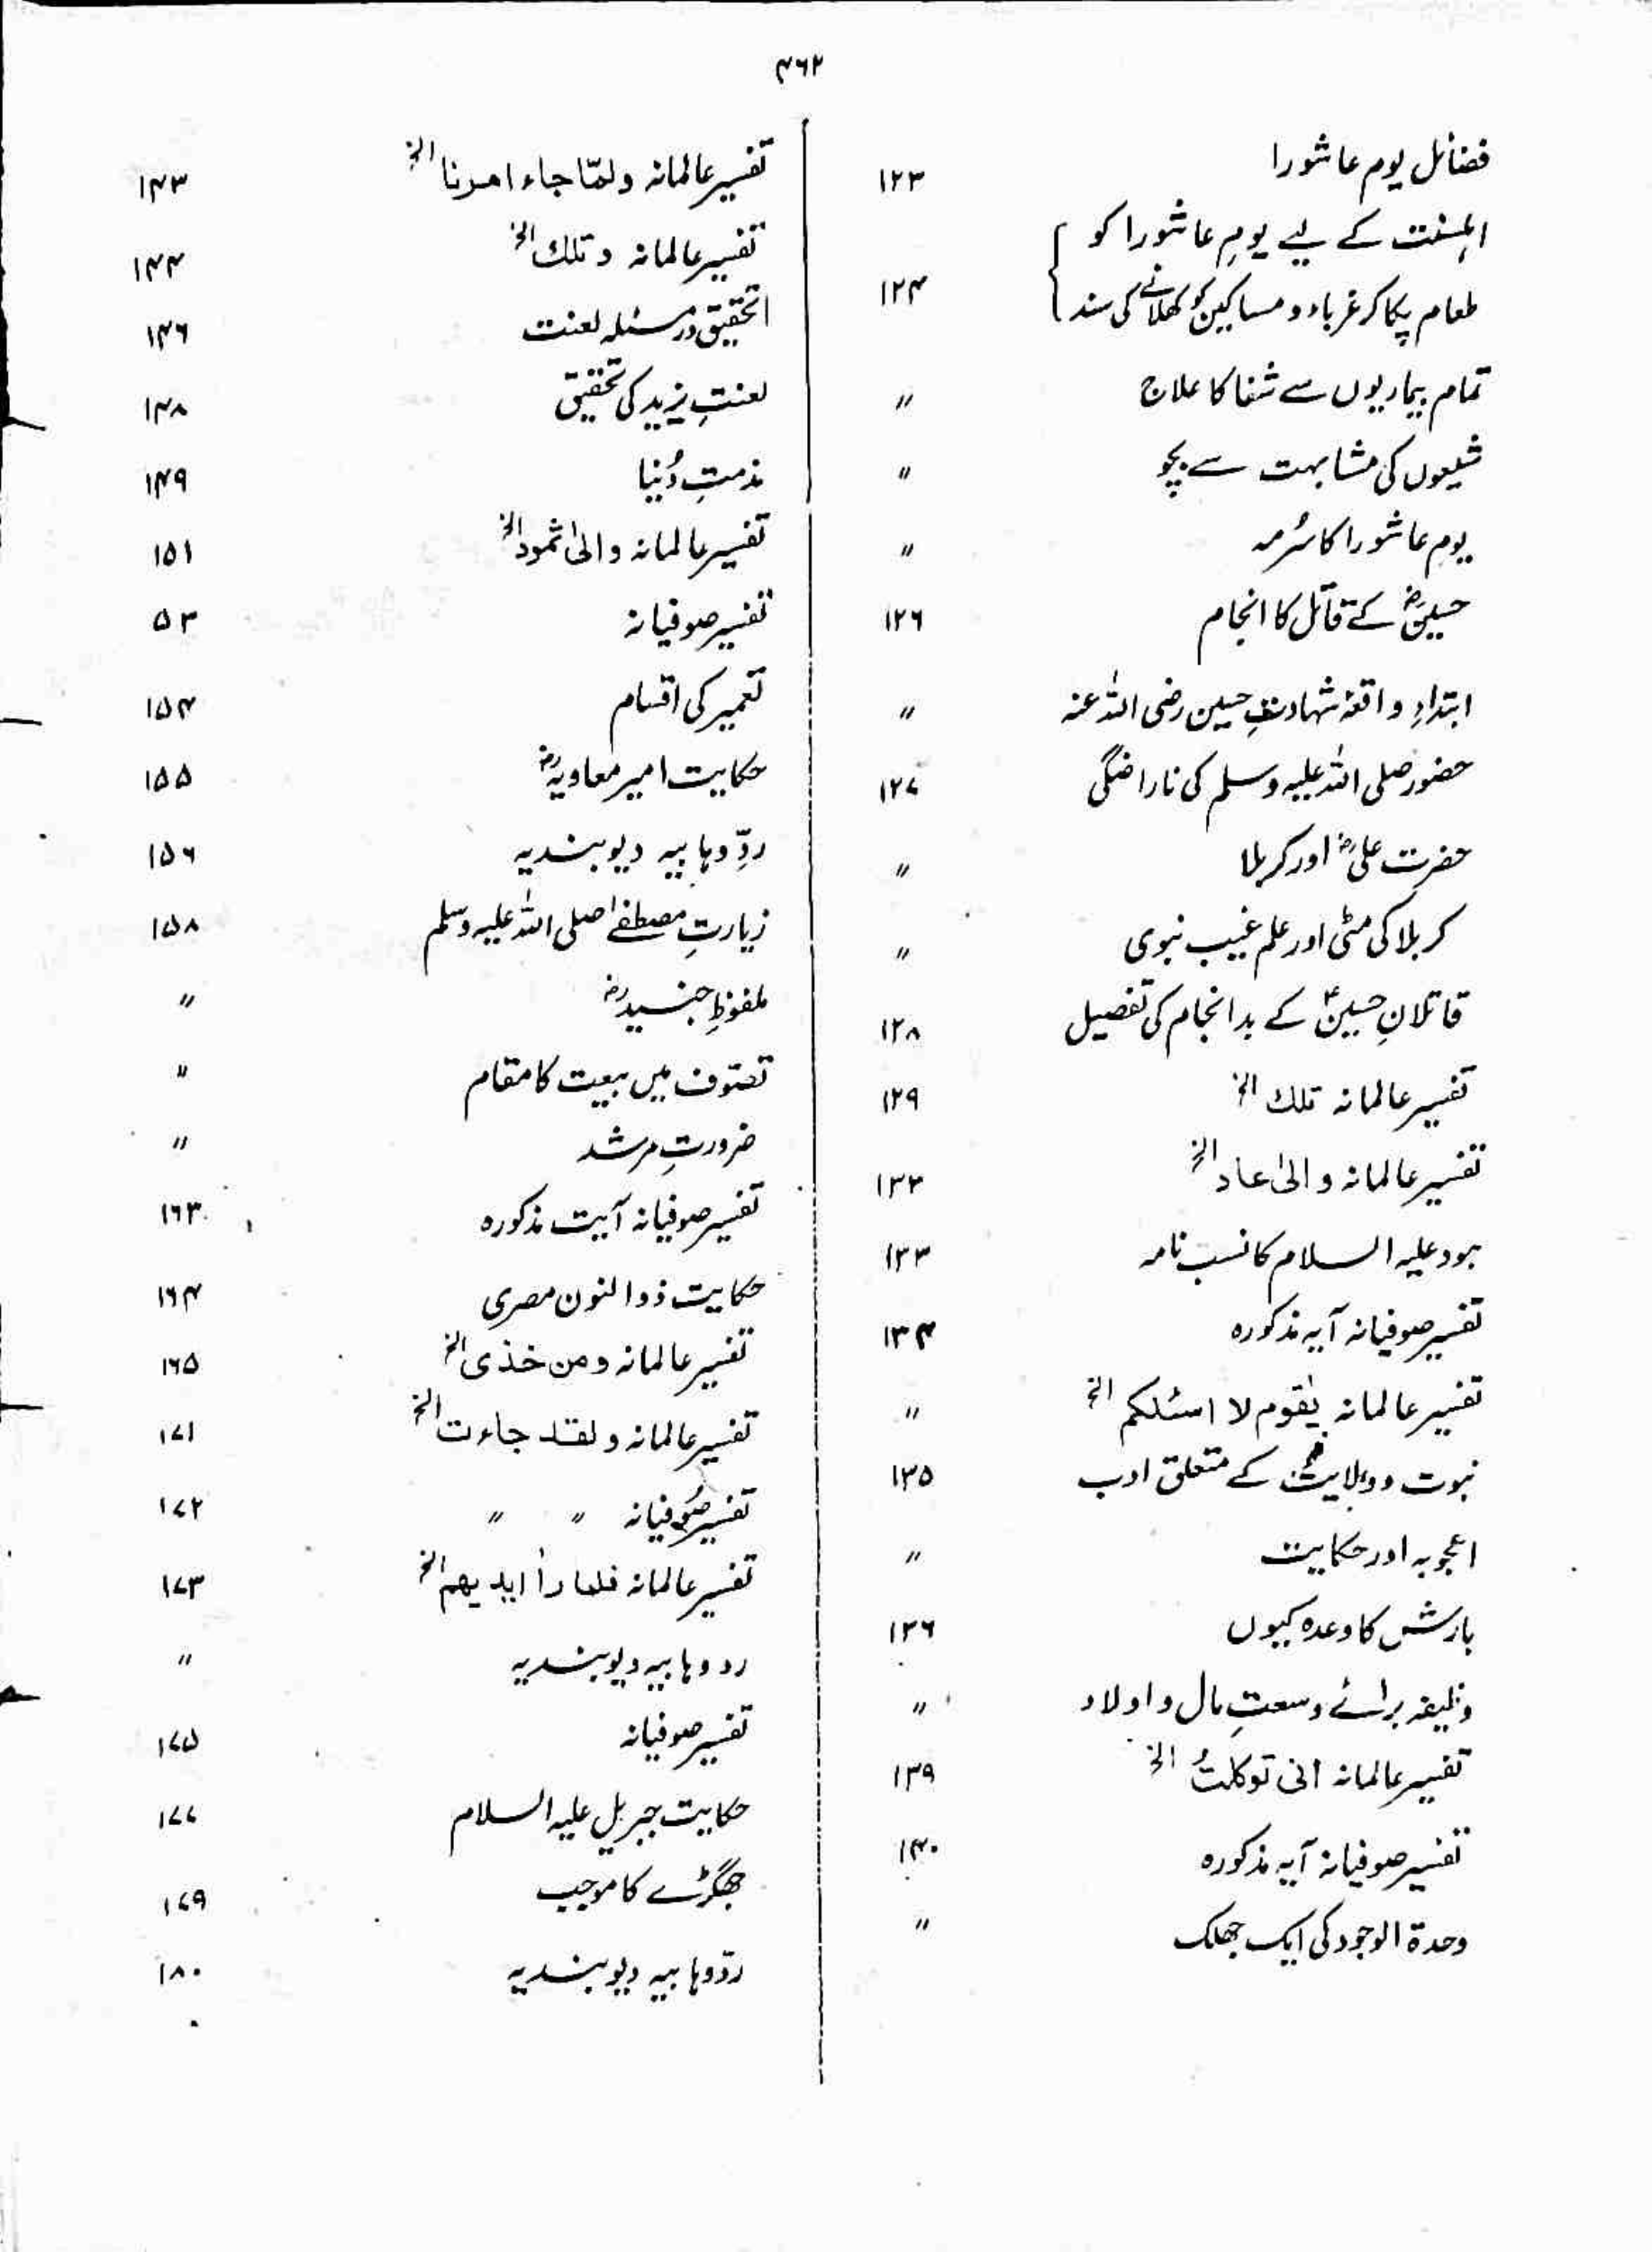 ۴۶۲
فضائل یوم عاشورا ۱۲۳
اہلسنت کے لیے یومِ عاشورا کو
طعام پکا کر غرباء و مساکین کو کھلانے کی سند ۱۲۴
تمام بیماریوں سے شفا کا علاج 〃
شیعوں کی مشابہت سے بچو 〃
یوم عاشورا کا سُرمہ 〃
حسینؓ کے قاتل کا انجام ۱۲۶
ابتداءِ واقعۂ شہادتِ حسین رضی اللہ عنہ 〃
حضور صلی اللہ علیہ وسلم کی ناراضگی ۱۲۷
حضرت علیؓ اور کربلا 〃
کربلا کی مٹی اور علم غیب نبوی 〃
قاتلانِ حسینؓ کے بد انجام کی تفصیل ۱۲۸
تفسیر عالمانہ تلك الخ ۱۲۹
تفسیر عالمانہ و الیٰ عاد الخ ۱۳۲
ہود علیہ السلام کا نسب نامہ ۱۳۳
تفسیر صوفیانہ آیہ مذکورہ ۱۳۴
تفسیر عالمانہ یٰقوم لا اسئلکم الخ 〃
نبوت و ولایت کے متعلق ادب ۱۳۵
اعجوبہ اور حکایت 〃
بارش کا وعدہ کیوں ۱۳۶
وظیفہ برائے وسعتِ مال و اولاد 〃
تفسیر عالمانہ انی توکلتُ الخ ۱۳۹
تفسیر صوفیانہ آیہ مذکورہ ۱۴۰
وحدۃ الوجود کی ایک جھلک 〃
تفسیر عالمانہ ولمّا جاء امرنا الخ ۱۴۳
تفسیر عالمانہ و تلك الخ ۱۴۴
تحقیق در مسئلہ لعنت ۱۴۶
لعنتِ یزید کی تحقیق ۱۴۸
مذمتِ دُنیا ۱۴۹
تفسیر عالمانہ و الیٰ ثمود الخ ۱۵۱
تفسیر صوفیانہ ۵۳
تعمیر کی اقسام ۱۵۴
حکایت امیر معاویہؓ ۱۵۵
ردِّ وہابیہ دیوبندیہ ۱۵۶
زیارتِ مصطفےٰ صلی اللہ علیہ وسلم ۱۵۸
ملفوظِ جنیدؓ 〃
تصوّف میں بیعت کا مقام 〃
ضرورتِ مرشد 〃
تفسیر صوفیانہ آیت مذکورہ ۱۶۳
حکایت ذوالنون مصری ۱۶۴
تفسیر عالمانہ و من خذی الخ ۱۶۵
تفسیر عالمانہ و لقد جاءت الخ ۱۷۱
تفسیر صُوفیانہ 〃 〃 ۱۷۲
تفسیر عالمانہ فلما رأ ایدیھم الخ ۱۷۳
رد وہابیہ دیوبندیہ 〃
تفسیر صوفیانہ ۱۷۵
حکایت جبریل علیہ السلام ۱۷۷
جھگڑے کا موجب ۱۷۹
ردّ وہابیہ دیوبندیہ ۱۸۰